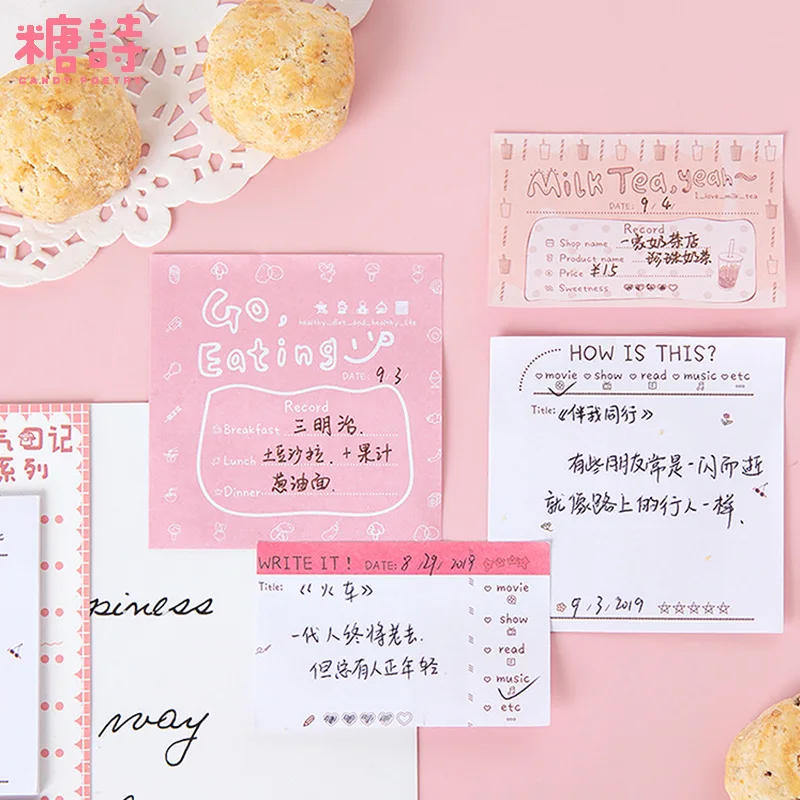 糖詩
CANDY POETRY
Milk Tea, yeah~
I_love_milk_tea
DATE: 9/4/
Record
Shop name 一家奶茶店
Product name 珍珠奶茶
Price ¥15
Sweetness
Go,
Eating
healthy_diet_and_healthy_life
DATE: 9/3/
Record
Breakfast 三明治.
Lunch 土豆沙拉. + 果汁
Dinner 葱油面.
HOW IS THIS?
movie show read music etc
Title: 《伴我同行》
有些朋友常是一闪而逝
就像路上的行人一样.
9/3/2019
WRITE IT! DATE: 8/29/2019
Title: 《火车》
一代人终将老去.
但总有人正年轻
movie
show
read
music
etc
气日记
系列
piness
way